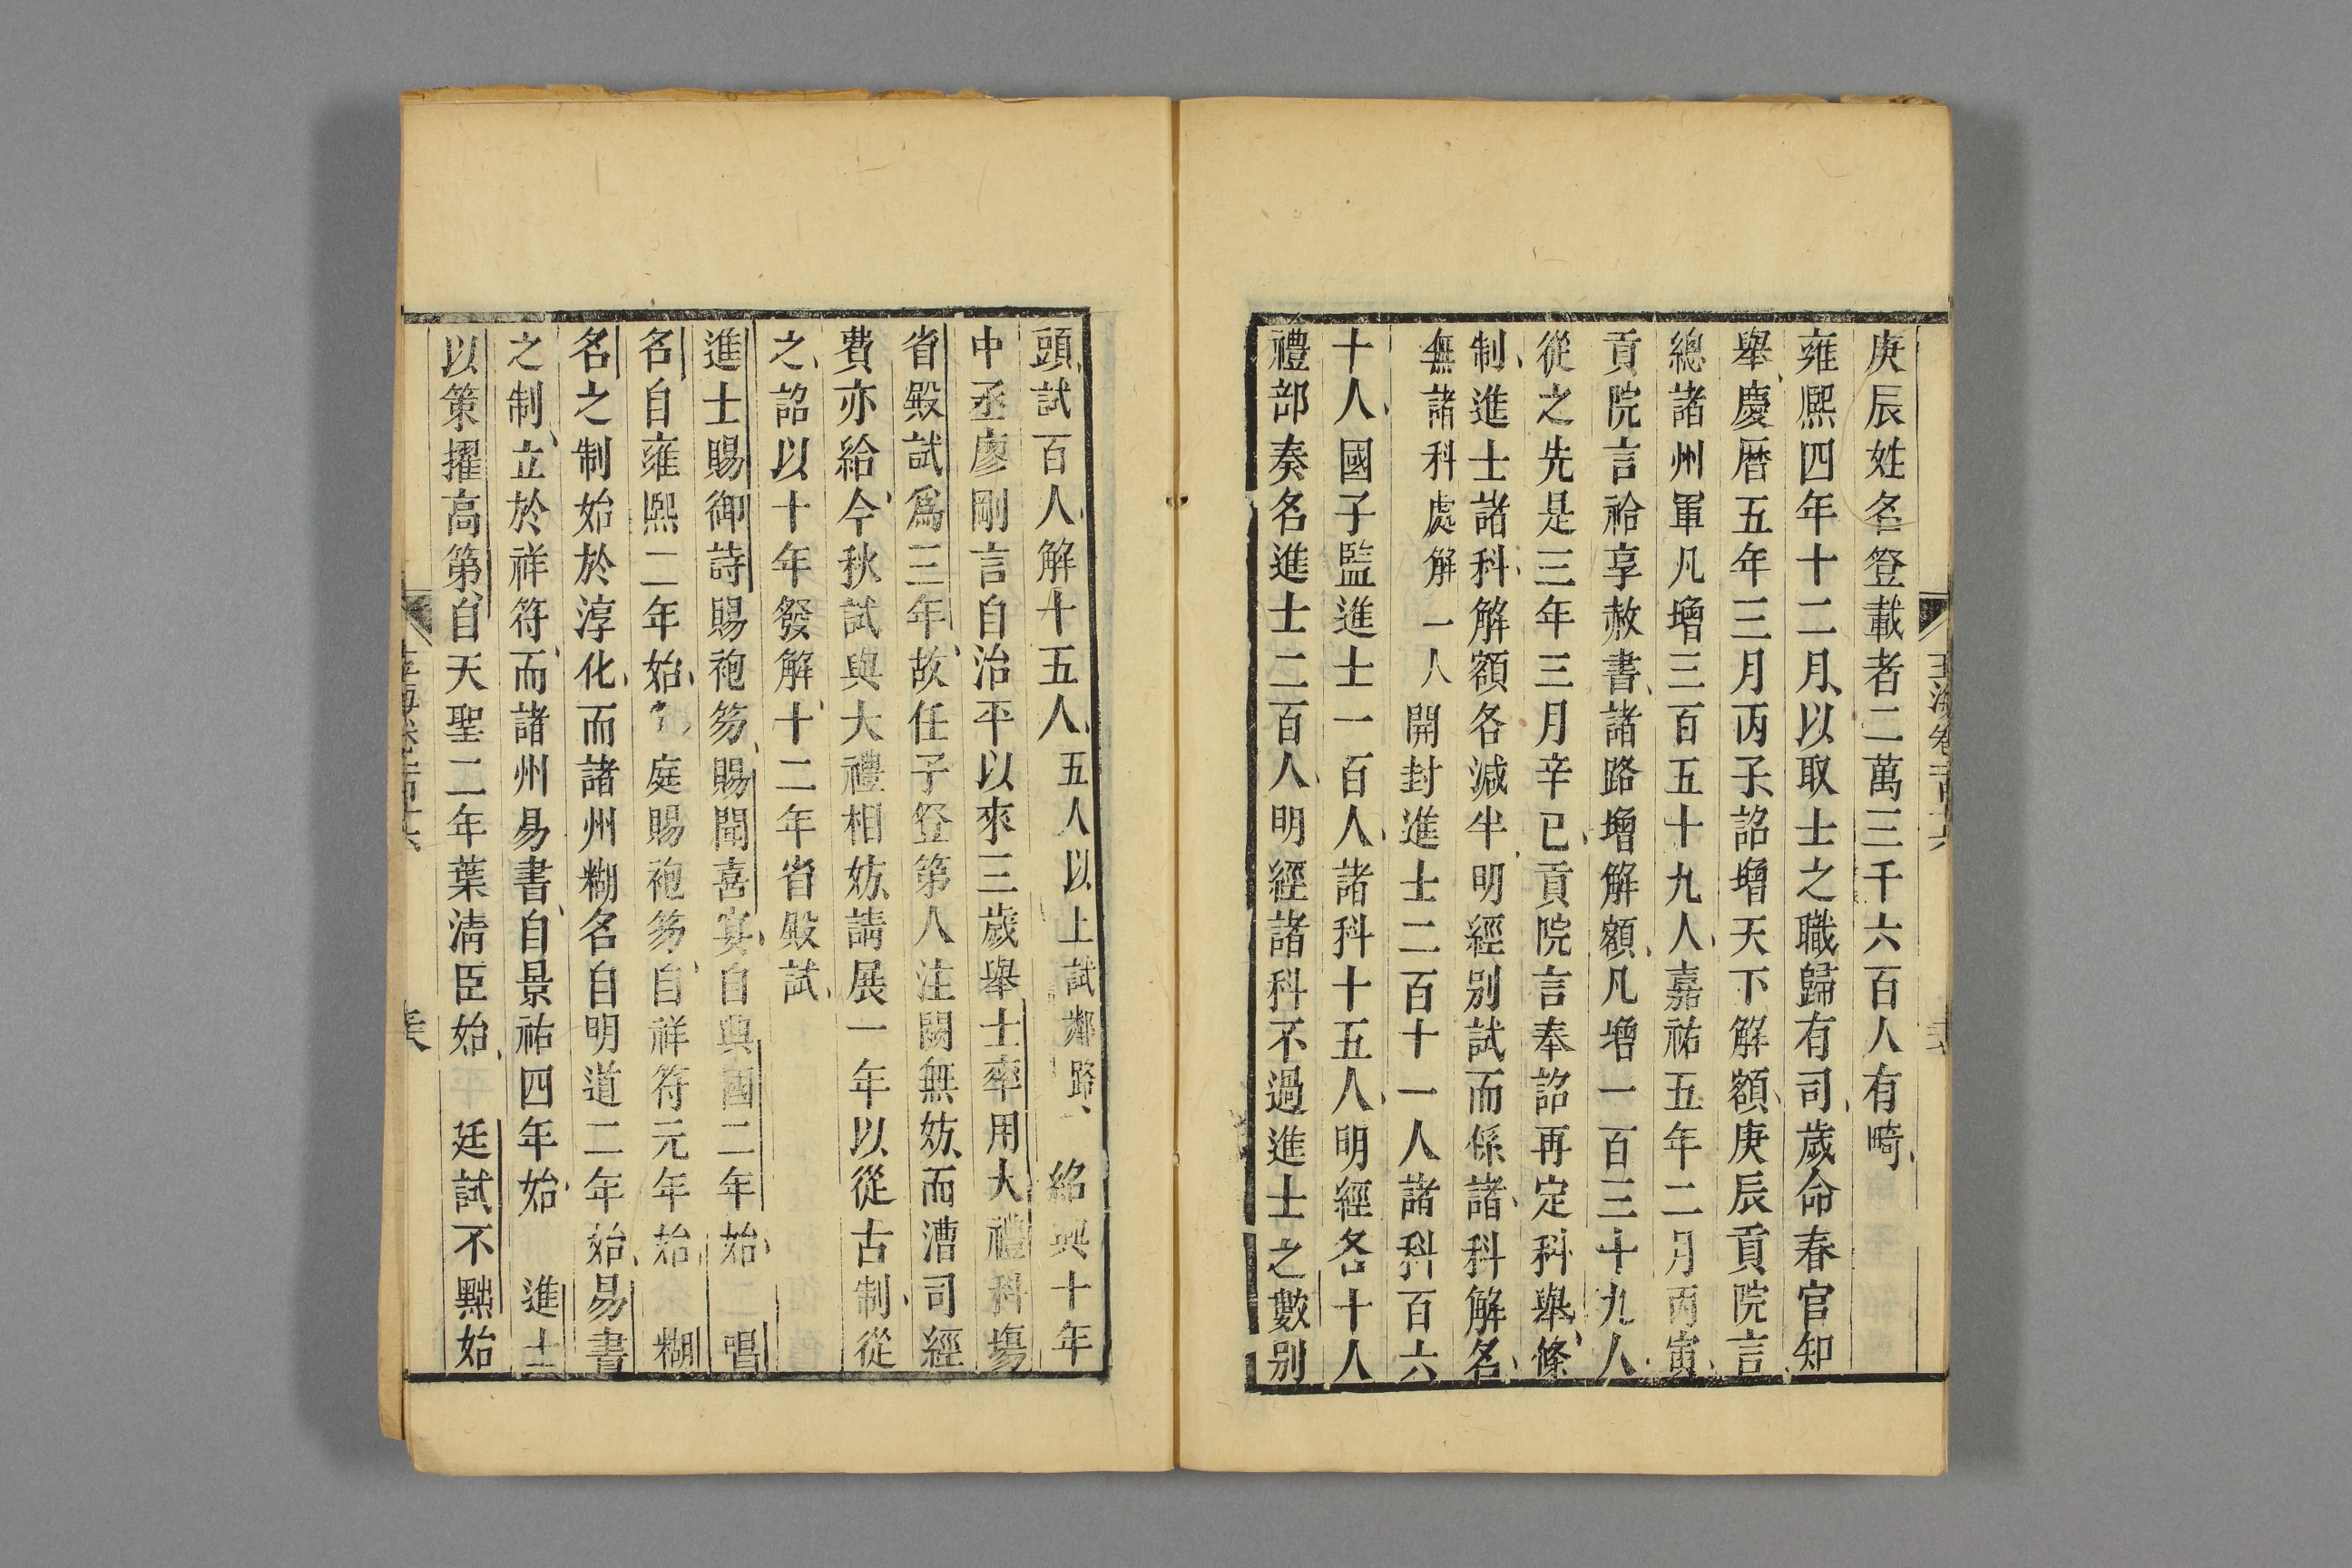 庚辰姓名登載者二萬三千六百人有畸
雍熙四年十二月以取士之職歸有司歲命春官知
舉慶曆五年三月丙子詔增天下解額庚辰貢院言
總諸州軍凡增三百五十九人嘉祐五年二月丙寅
貢院言祫享赦書諸路增解額凡增一百三十九人
從之先是三年三月辛巳貢院言奉詔再定科舉條
制進士諸科解額各減半明經別試而係諸科解名
無諸科處解一人開封進士二百十一人諸科百六
十人國子監進士一百人諸科十五人明經各十人
禮部奏名進士二百人明經諸科不過進士之數別
頭試百人解十五人五人以上試鄰路紹興十年
中丞廖剛言自治平以來三歲舉士率用大禮科塲
省殿試爲三年故任子登第人注闕無妨而漕司經
費亦給今秋試與大禮相妨請展一年以從古制從
之詔以十年發解十二年省殿試
進士賜御詩賜袍笏賜聞喜宴自興國二年始 唱
名自雍熙二年始 庭賜袍笏自祥符元年始 糊
名之制始於淳化而諸州糊名自明道二年始易書
之制立於祥符而諸州易書自景祐四年始 進士
以策擢高第自天聖二年葉清臣始 廷試不黜始